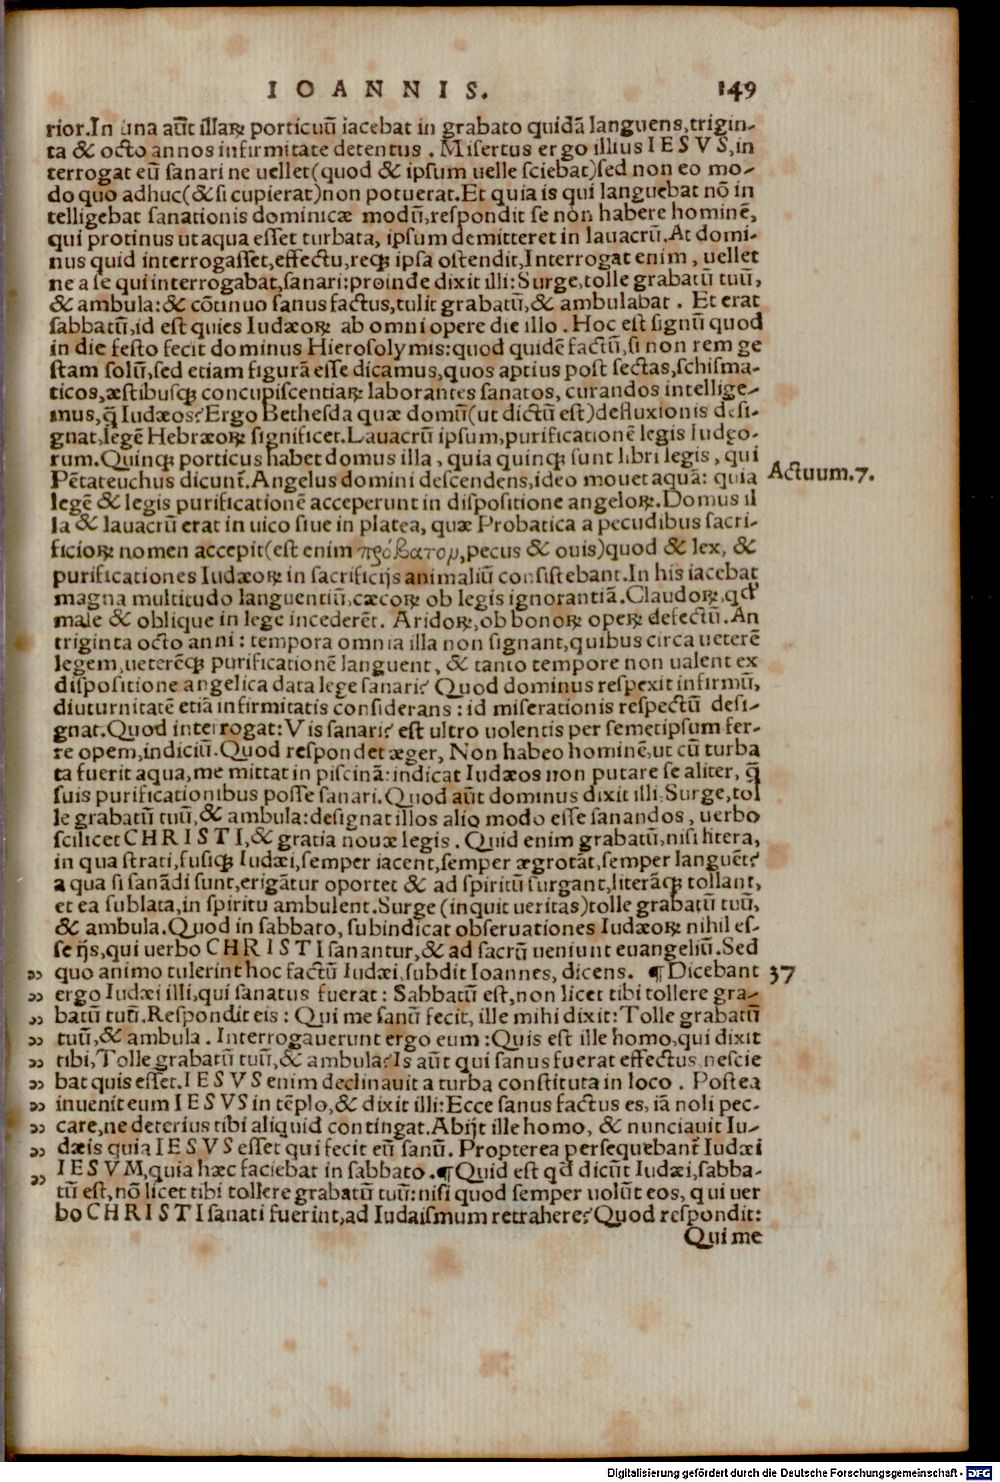 IOANNIS. 149
rior. In una aūt illaꝝ porticuū iacebat in grabato quidā languens, trigin-
ta & octo annos infirmitate detentus . Misertus ergo illius IESVS, in
terrogat eū sanari ne uellet (quod & ipsum uelle sciebat) sed non eo mo-
do quo adhuc (& si cupierat) non potuerat. Et quia is qui languebat nō in
telligebat sanationis dominicæ modū, respondit se non habere hominē,
qui protinus ut aqua esset turbata, ipsum demitteret in lauacrū. At domi-
nus quid interrogasset, effectu, reqꝫ ipsa ostendit, Interrogat enim , uellet
ne a se qui interrogabat, sanari: proinde dixit illi: Surge, tolle grabatū tuū,
& ambula: & cōtinuo sanus factus, tulit grabatū, & ambulabat . Et erat
sabbatū, id est quies Iudæoꝝ ab omni opere die illo . Hoc est signū quod
in die festo fecit dominus Hierosolymis: quod quidē factū, si non rem ge
stam solū, sed etiam figurā esse dicamus, quos aptius post sectas, schisma-
ticos, æstibusqꝫ concupiscentiaꝝ laborantes sanatos, curandos intellige-
mus, q̄ Iudæos? Ergo Bethesda quæ domū (ut dictū est) defluxionis desi-
gnat, legē Hebræoꝝ significet. Lauacrū ipsum, purificationē legis Iudęo-
rum. Quinqꝫ porticus habet domus illa , quia quinqꝫ sunt libri legis , qui
Pētateuchus dicunt᷑. Angelus domini descendens, ideo mouet aquā: quia
Actuum. 7.
legē & legis purificationē acceperunt in dispositione angeloꝝ. Domus il
la & lauacrū erat in uico siue in platea, quæ Probatica a pecudibus sacri-
ficioꝝ nomen accepit (est enim πρόβατομ, pecus & ouis) quod & lex, &
purificationes Iudæoꝝ in sacrificijs animaliū consistebant. In his iacebat
magna multitudo languentiū, cæcoꝝ ob legis ignorantiā. Claudoꝝ, qd'
male & oblique in lege incederēt. Aridoꝝ, ob bonoꝝ opeꝝ defectū. An
triginta octo anni : tempora omnia illa non signant, quibus circa ueterē
legem, ueterēqꝫ purificationē languent, & tanto tempore non ualent ex
dispositione angelica data lege sanari? Quod dominus respexit infirmū,
diuturnitatē etiā infirmitatis considerans : id miserationis respectū desi-
gnat. Quod interrogat: Vis sanari? est ultro uolentis per semetipsum fer-
re opem, indiciū. Quod respondet æger, Non habeo hominē, ut cū turba
ta fuerit aqua, me mittat in piscinā: indicat Iudæos non putare se aliter, q̄
suis purificationibus posse sanari. Quod aūt dominus dixit illi, Surge, tol
le grabatū tuū, & ambula: designat illos alio modo esse sanandos, uerbo
scilicet CHRISTI, & gratia nouæ legis . Quid enim grabatū, nisi litera,
in qua strati, fusiqꝫ Iudæi, semper iacent, semper ægrotāt, semper languēt?
a qua si sanādi sunt, erigātur oportet & ad spiritū surgant, literāqꝫ tollant,
et ea sublata, in spiritu ambulent. Surge (inquit ueritas) tolle grabatū tuū,
& ambula. Quod in sabbato, subindicat obseruationes Iudæoꝝ nihil es-
se ijs, qui uerbo CHRISTI sanantur, & ad sacrū ueniunt euangeliū. Sed
„ quo animo tulerint hoc factū Iudæi, subdit Ioannes, dicens. ¶ Dicebant 37
„ ergo Iudæi illi, qui sanatus fuerat : Sabbatū est, non licet tibi tollere gra-
„ batū tuū. Respondit eis : Qui me sanū fecit, ille mihi dixit: Tolle grabatū
„ tuū, & ambula . Interrogauerunt ergo eum : Quis est ille homo, qui dixit
„ tibi, Tolle grabatū tuū, & ambula? Is aūt qui sanus fuerat effectus, nescie
„ bat quis esset. IESVS enim declinauit a turba constituta in loco . Postea
„ inuenit eum IESVS in tēplo, & dixit illi: Ecce sanus factus es, iā noli pec-
„ care, ne deterius tibi aliquid contingat. Abijt ille homo, & nunciauit Iu-
„ dæis quia IESVS esset qui fecit eū sanū. Propterea persequebant᷑ Iudæi
„ IESVM, quia hæc faciebat in sabbato . ¶ Quid est qd' dicūt Iudæi, sabba-
tū est, nō licet tibi tollere grabatū tuū: nisi quod semper uolūt eos, qui uer
bo CHRISTI sanati fuerint, ad Iudaismum retrahere? Quod respondit:
Qui me
Digitalisierung gefördert durch die Deutsche Forschungsgemeinschaft - DFG